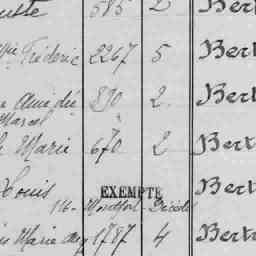 585 2 Bert
Frédéric 2267 5 Bert
Amédé 890 2 Bert
Marcel
Marie 670 2 Bert
Louis EXEMPTE Bert
116 - Montfort - Décédé
Marie 1787 4 Bert